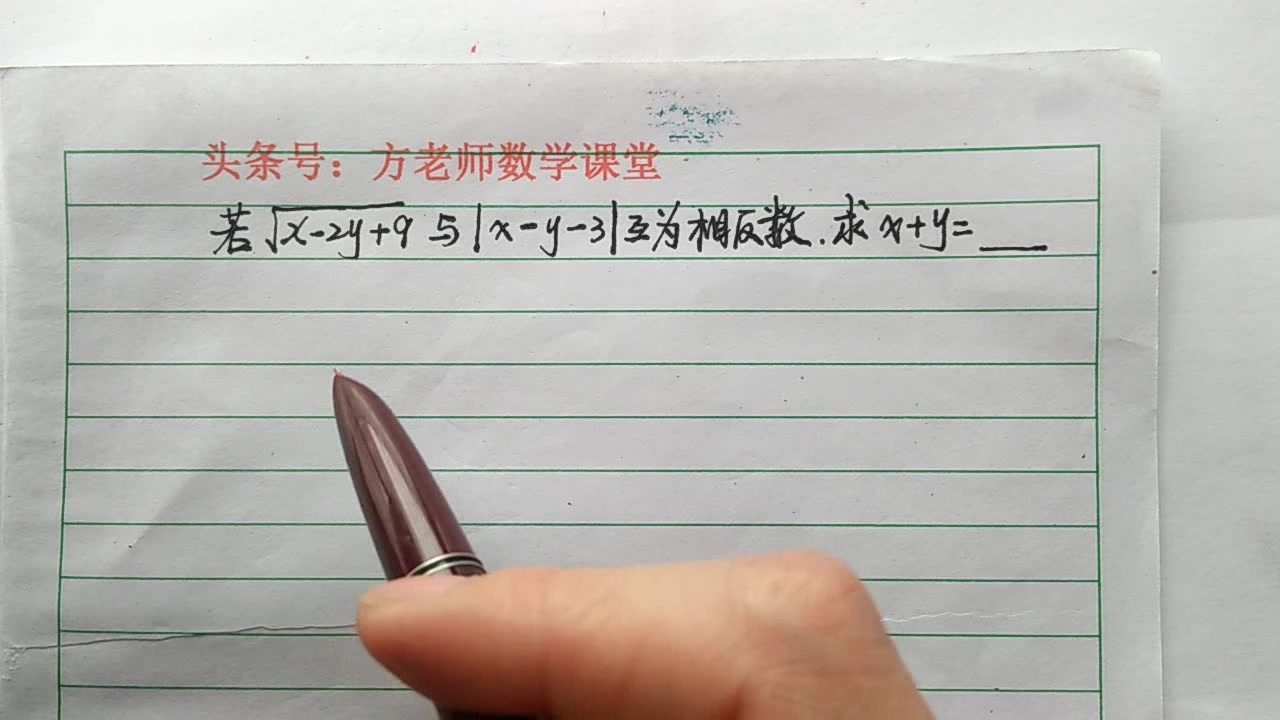 头条号：方老师数学课堂
若√(x-2y+9) 与 |x-y-3| 互为相反数.求 x+y=___